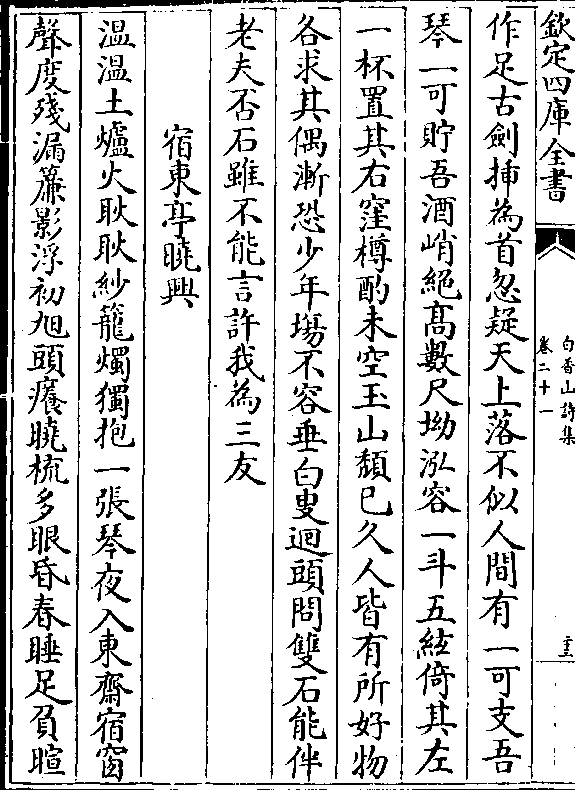 欽定四庫全書
白香山詩集
卷二十一
作足古劍揷為首忽疑天上落不似人間有一可支吾
琴一可貯吾酒峭絕髙數尺坳泓容一斗五絃倚其左
一杯置其右窪樽酌未空玉山頽已久人皆有所好物
各求其偶漸恐少年塲不容垂白叟迴頭問雙石能伴
老夫否石雖不能言許我為三友
宿東亭曉興
温温土爐火耿耿紗籠燭獨抱一張琴夜入東齋宿窗
聲度殘漏簾影浮初旭頭癢曉梳多眼昏春睡足負暄